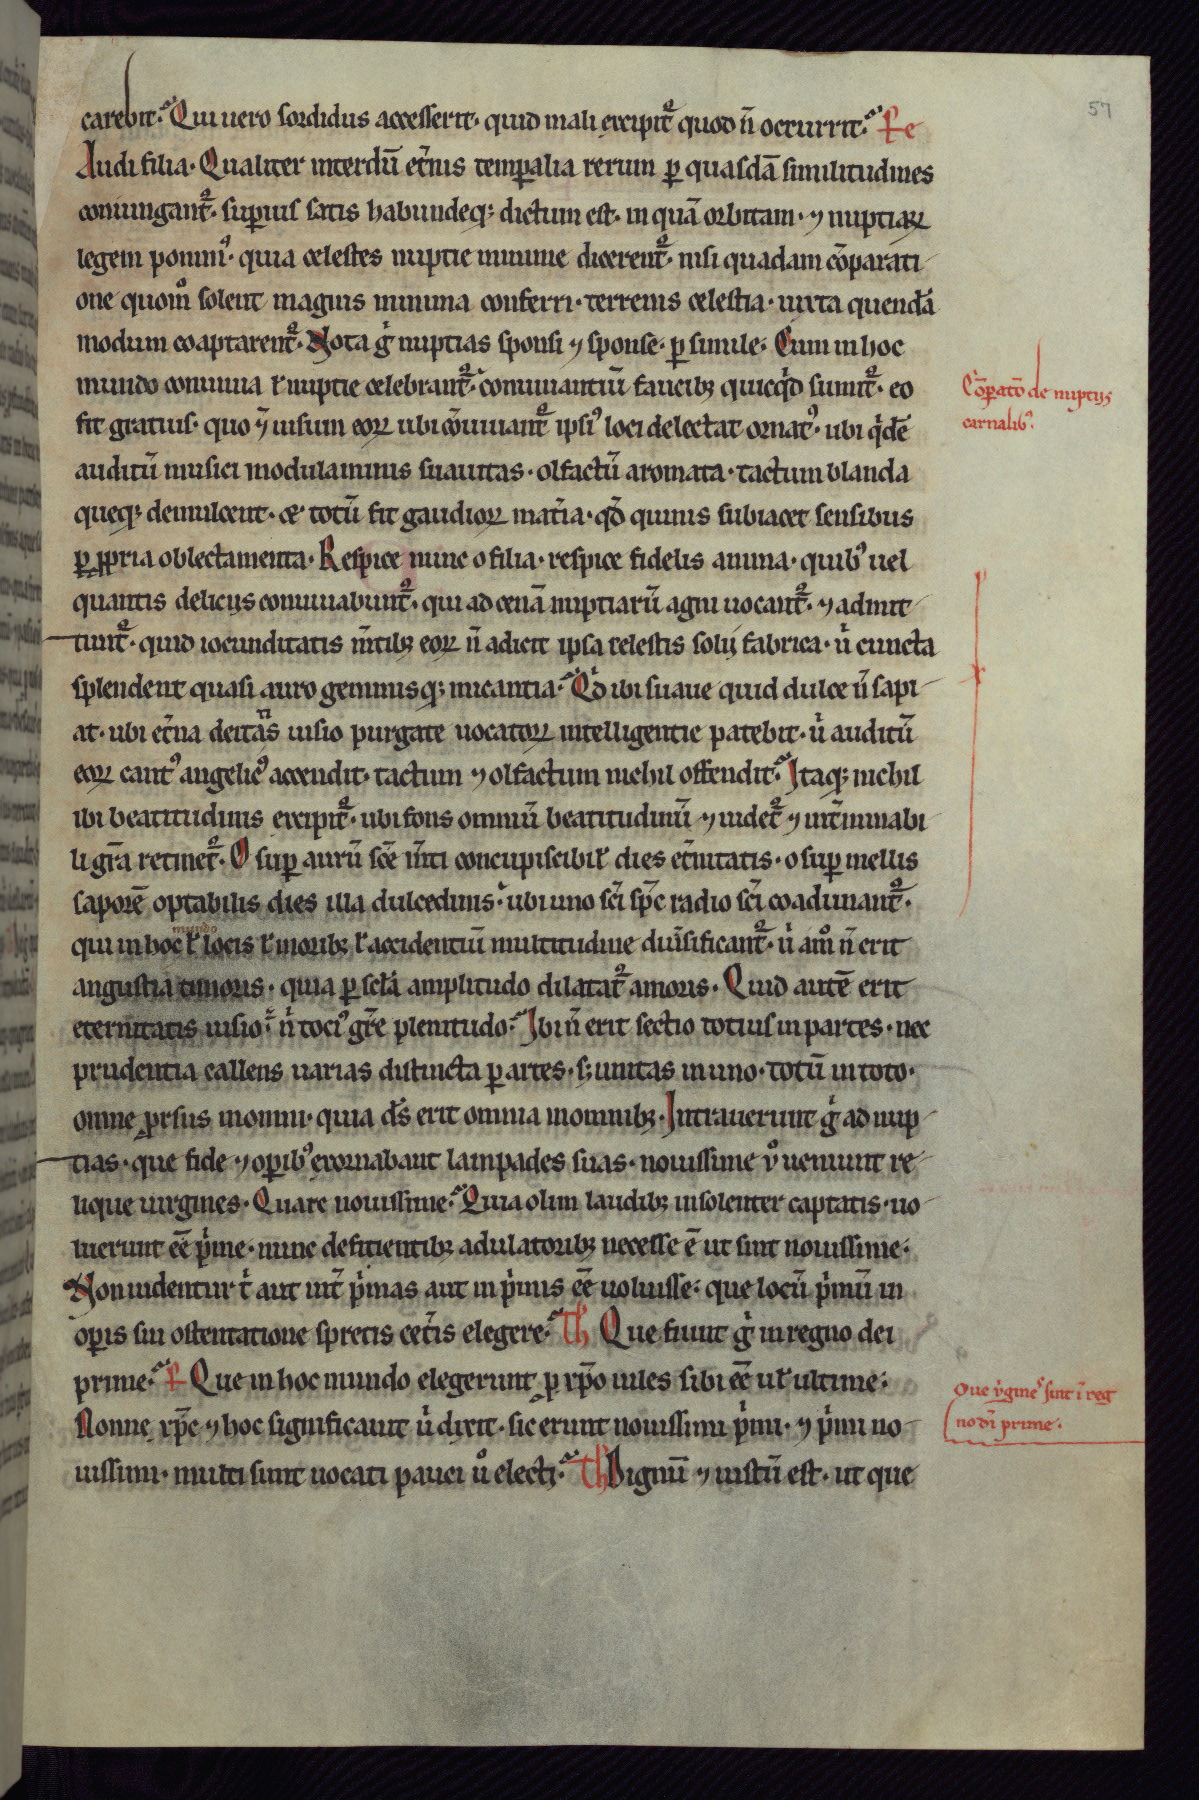 57
carebit. Qui uero sordidus accesserit. quid mali excipit᷑ quod n̄ occurrit. Pe
Audi filia. Qualiter interdū et̄nis temꝑalia rerum ꝑ quasdā similitudines
coniungant᷑. suꝑius satis habundeqꝫ dictum est. in quā orbitam. ⁊ nuptiaꝝ
legem ponimꝰ. quia celestes nuptie minime dicerent᷑. nisi quadam cōparati
one quom̊ solent magnis minima conferri. terrenis celestia. iuxta quendā
modum coaptarent᷑. Nota g̊ nuptias sponsi ⁊ sponse. ꝑ simile. Cum in hoc
mundo conuiuia ł nuptie celebrant᷑. conuiuantiū faucibꝫ quicqͥd sumit᷑. eo
fit gratius. quo ⁊ uisum eoꝝ ubi cōuiuant᷑ ipsiꝰ loci delectat ornatꝰ. ubi qͥdē
auditū musici modulaminis suauitas. olfactū aromata. tactum blanda
queqꝫ demulcent. ac totū fit gaudioꝝ mat̄ia. qd̄ quinis subiacet sensibus
ꝑ ꝓpria oblectamenta. Respice nunc o filia. respice fidelis anima. quibꝰ uel
quantis deliciis conuiuabunt᷑. qui ad cenā nuptiarū agni uocant᷑. ⁊ admit
tunt᷑. quid iocunditatis m̄tibꝫ eoꝝ n̄ adicit ipsa celestis solii fabrica. uͥ cuncta
splendent quasi auro gemmisqꝫ micantia. Qͥd ibi suaue quid dulce n̄ sapi
at. ubi et̄na deitatis uisio purgate uocatoꝝ intelligentie patebit. uͥ auditū
eoꝝ cantꝰ angelicꝰ accendit. tactum ⁊ olfactum nichil offendit. Itaqꝫ nichil
ibi beatitudinis excipit᷑. ubi fons omniū beatitudinū ⁊ uidet᷑ ⁊ int̄minabi
li gr̄a retinet᷑. O suꝑ aurū sc̄e m̄ti concupiscibił dies et̄nitatis. o suꝑ mellis
saporē optabilis dies illa dulcedinis. ubi uno sc̄i sp̄c radio sc̄i coadunant᷑.
qui in hoc mundo ł locis ł moribꝫ ł accidentiū multitudine diu̾sificant᷑. uͥ am̊ n̄ erit
angustia timoris. quia ꝑ sc̄lā amplitudo dilatat᷑ amoris. Quid autē erit
eternitatis uisio. nͥ tociꝰ gr̄e plenitudo. Ibi n̄ erit sectio totius in partes. nec
prudentia callens uarias distincta ꝑ artes. sꝫ unitas in uno. totū in toto.
omne ꝓrsus in omni. quia d̄s erit omnia in omnibꝫ. Intrauerunt g̊ ad nup
tias. que fide ⁊ oꝑibꝰ exornabant lampades suas. nouissime ů ueniunt re
lique uirgines. Quare nouissime. Quia olim laudibꝫ insolenter captatis. uo
luerunt eē pͥme. nunc deficientibꝫ adulatoribꝫ necesse ē ut sint nouissime.
Non uidentur tͥ aut int̄ pͥmas aut in pͥmis eē uoluisse. que locū pͥmū in
oꝑis sui ostentatione spretis cet̄is elegere. Th Que fiunt g̊ in regno dei
prime. P Que in hoc mundo elegerunt ꝓ xp̄o uiles sibi eē uł ultime.
Nonne xp̄c ⁊ hoc significauit uͥ dixit. sic erunt nouissimi pͥmi. ⁊ pͥmi no
uissimi. multi sunt uocati pauci ů electi. Th Dignū ⁊ iustū est. ut que
Cōꝑatō de nuptiis
carnalibꝰ.
Que uͥginesͤ sint ī reg
no dī prime.